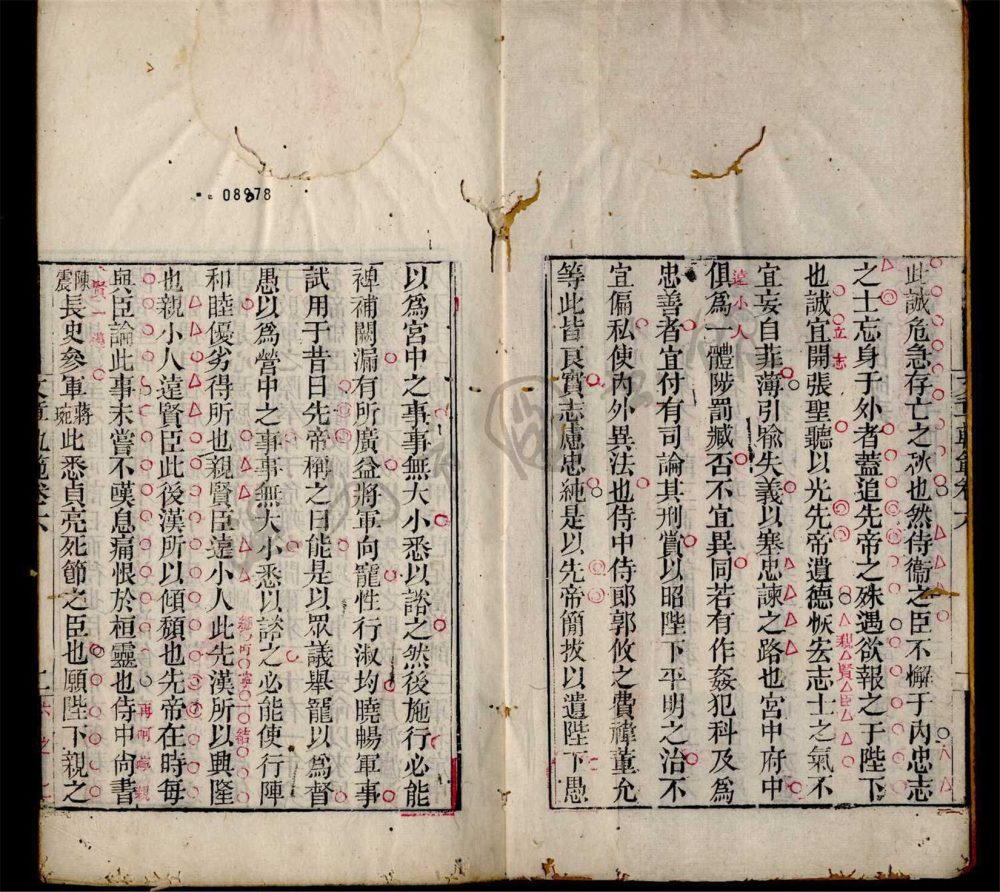 此誠危急存亡之秋也然侍衞之臣不懈于內忠志
之士忘身于外者蓋追先帝之殊遇欲報之于陛下
也誠宜開張聖聽以光先帝遺德恢宏志士之氣不
宜妄自菲薄引喻失義以塞忠諫之路也宮中府中
俱爲一體陟罰臧否不宜異同若有作姦犯科及爲
忠善者宜付有司論其刑賞以昭陛下平明之治不
宜偏私使內外異法也侍中侍郎郭攸之費禕董允
等此皆良實志慮忠純是以先帝簡拔以遺陛下愚
立志
親賢臣
遠小人
08978
以爲宮中之事事無大小悉以諮之然後施行必能
裨補闕漏有所廣益將軍向寵性行淑均曉暢軍事
試用于昔日先帝稱之曰能是以眾議舉寵以爲督
愚以爲營中之事事無大小悉以諮之必能使行陣
和睦優劣得所也親賢臣遠小人此先漢所以興隆
也親小人遠賢臣此後漢所以傾頹也先帝在時每
與臣論此事未嘗不嘆息痛恨於桓靈也侍中尚書
陳震長史參軍蔣琬此悉貞亮死節之臣也願陛下親之
文章軌範卷六